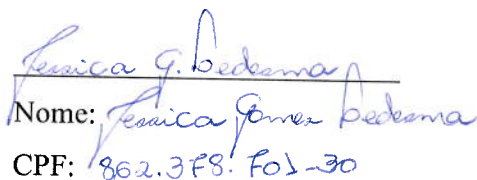 Jessica G. Ledesma
Nome: Jessica Gomes Ledesma
CPF: 862.378.701-30